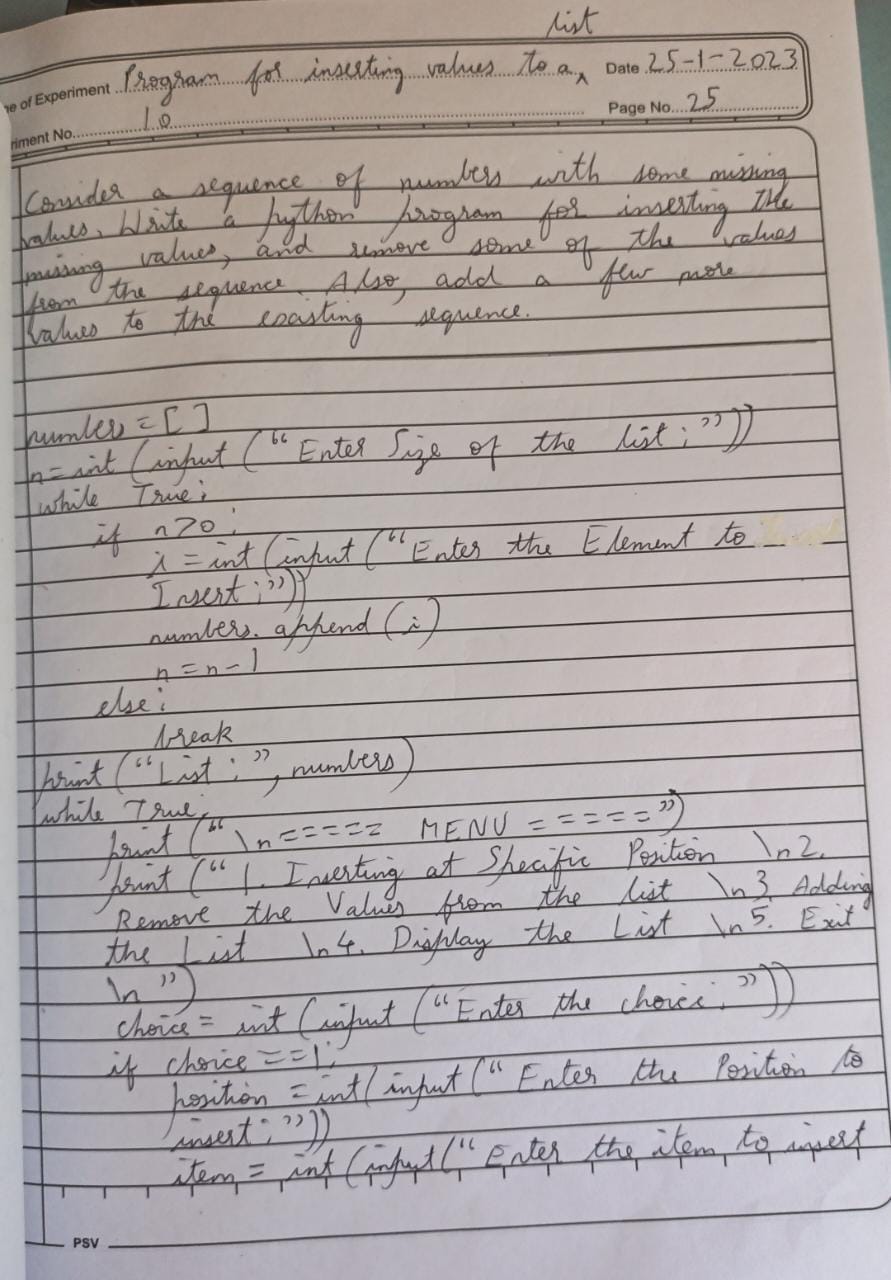 list
ne of Experiment Program for inserting values to a ^ Date 25-1-2023
riment No. 10 Page No. 25
Consider a sequence of numbers with some missing
values, Write a python program for inserting the
missing values, and remove some of the values
from the sequence. Also, add a few more
values to the exasting sequence.
number = [ ]
n = int (input (“Enter Size of the list : ”))
while True:
if n>0 :
i = int (input (“Enter the Element to
Insert :”))
numbers. append (i)
n = n-1
else :
break
print (“List : ”, numbers)
while True:
print (“ \n ===== MENU =====”)
print (“ 1. Inserting at Specific Position \n2.
Remove the Values from the list \n3 Adding
the List \n4. Display the List \n5. Exit
\n ”)
choice = int (input (“Enter the choice: ”))
if choice ==1:
position = int( input (“ Enter the Position to
insert: ”))
item = int (input (“ Enter the item to insert
PSV